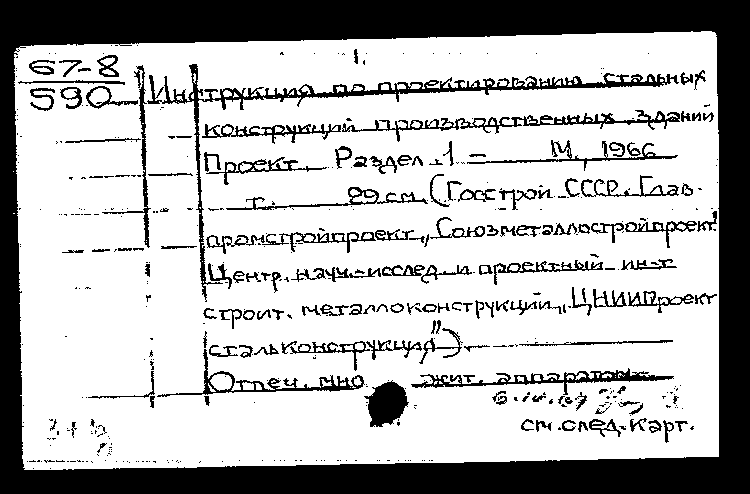 1.
67-8
590
Инструкция по проектированию стальных
конструкций производственных зданий
Проект. Раздел. 1 – М., 1966
т. 29 см. (Госстрой СССР. Глав-
промстройпроект „Союзметаллостройпроект"
Центр. науч.-исслед. и проектный ин-т
строит. металлоконструкций „ЦНИИПроект
стальконструкция")
Отпеч. мно жит. аппаратом.
см. след. карт.